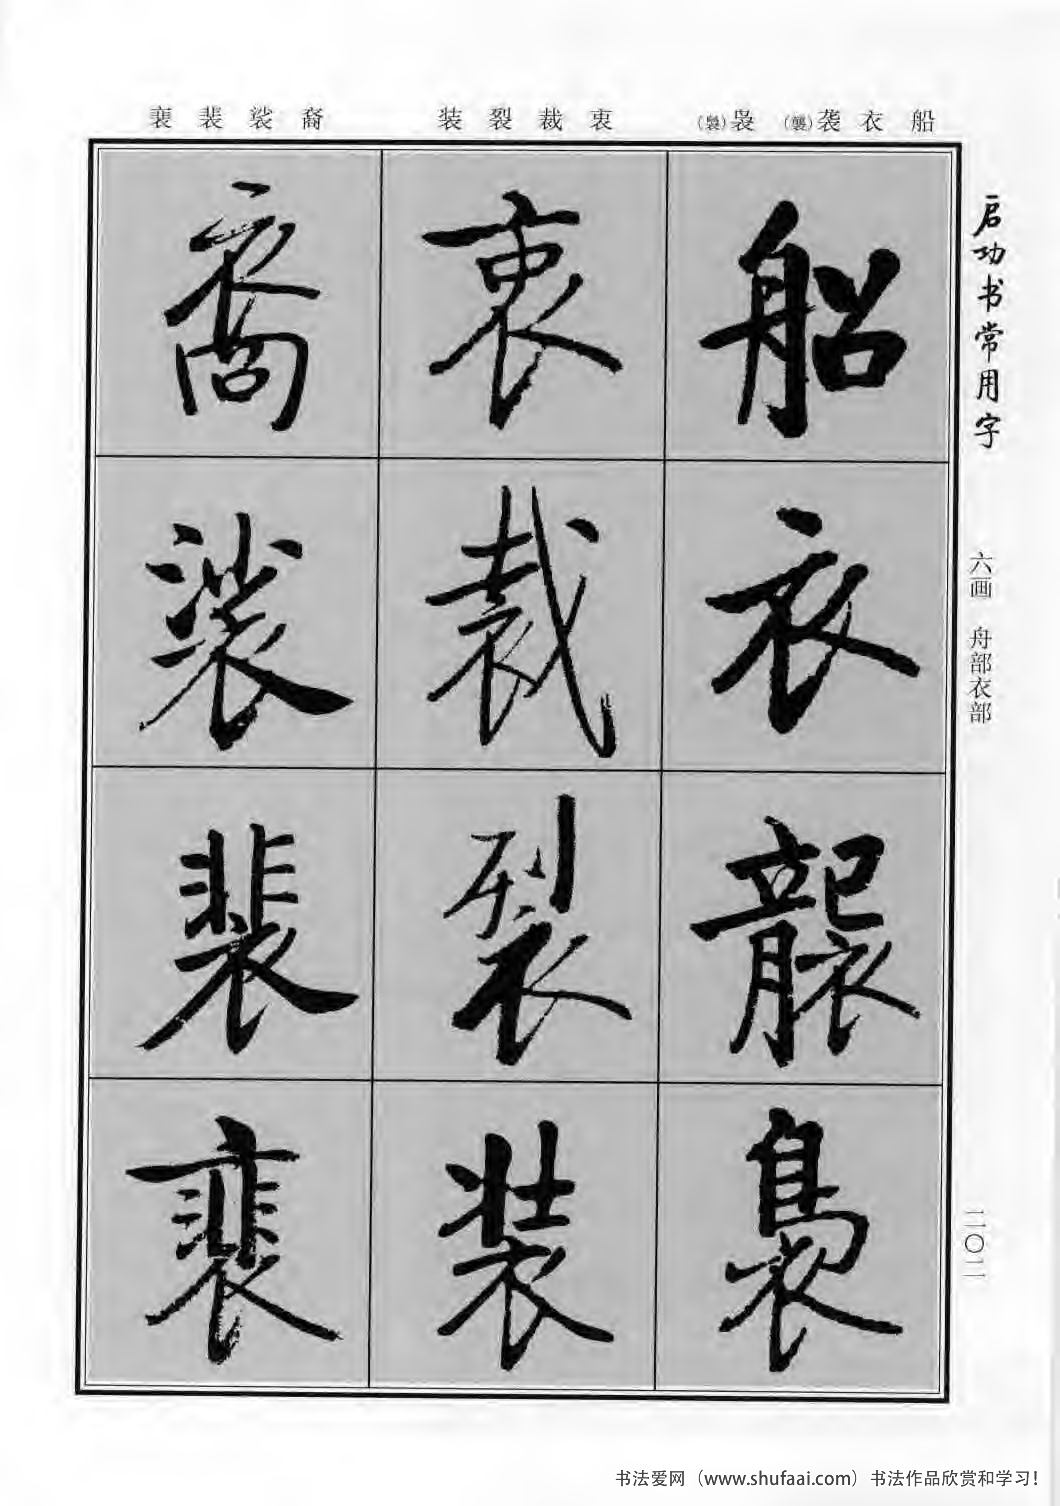 船 衣 袭(襲) 袅(裊)
衷 裁 裂 装
裔 裟 裴 裵
启功书常用字
六画 舟部衣部
二〇二
船
衣
襲
裊
衷
裁
裂
装
裔
裟
裴
裵
书法爱网（www.shufaai.com）书法作品欣赏和学习！